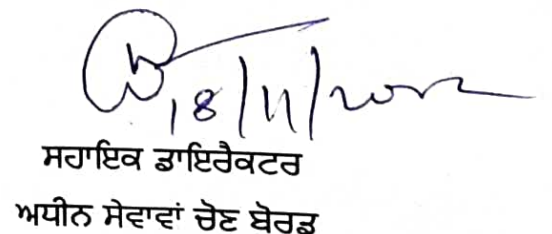 18/11/2022
ਸਹਾਇਕ ਡਾਇਰੈਕਟਰ
ਅਧੀਨ ਸੇਵਾਵਾਂ ਚੋਣ ਬੋਰਡ